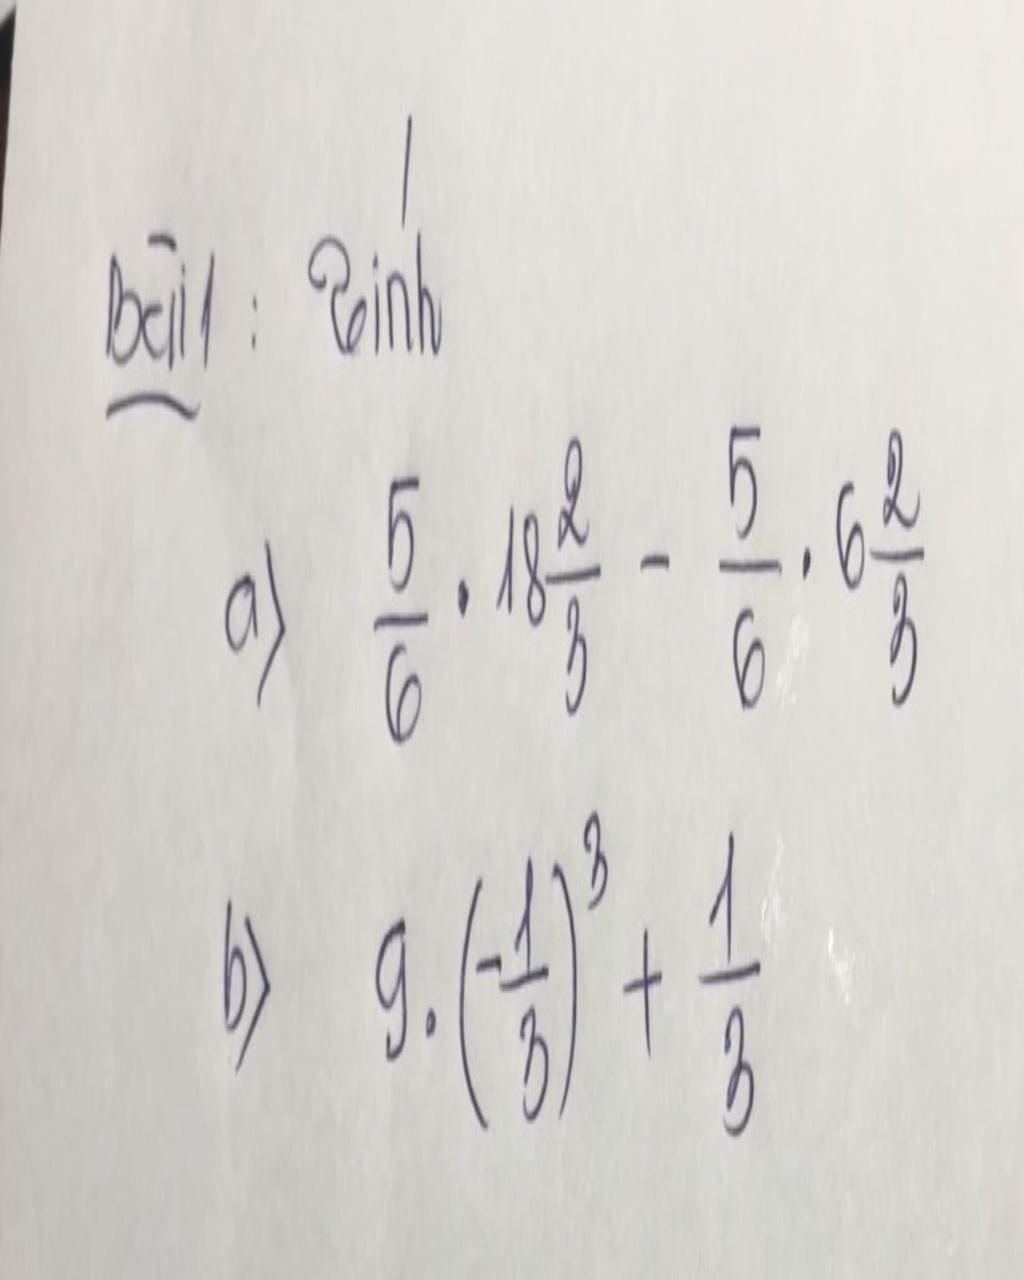 Bài 1 : Tính
a) 5/6 . 18 2/3 - 5/6 . 6 2/3
b) 9. (-1/3)³ + 1/3